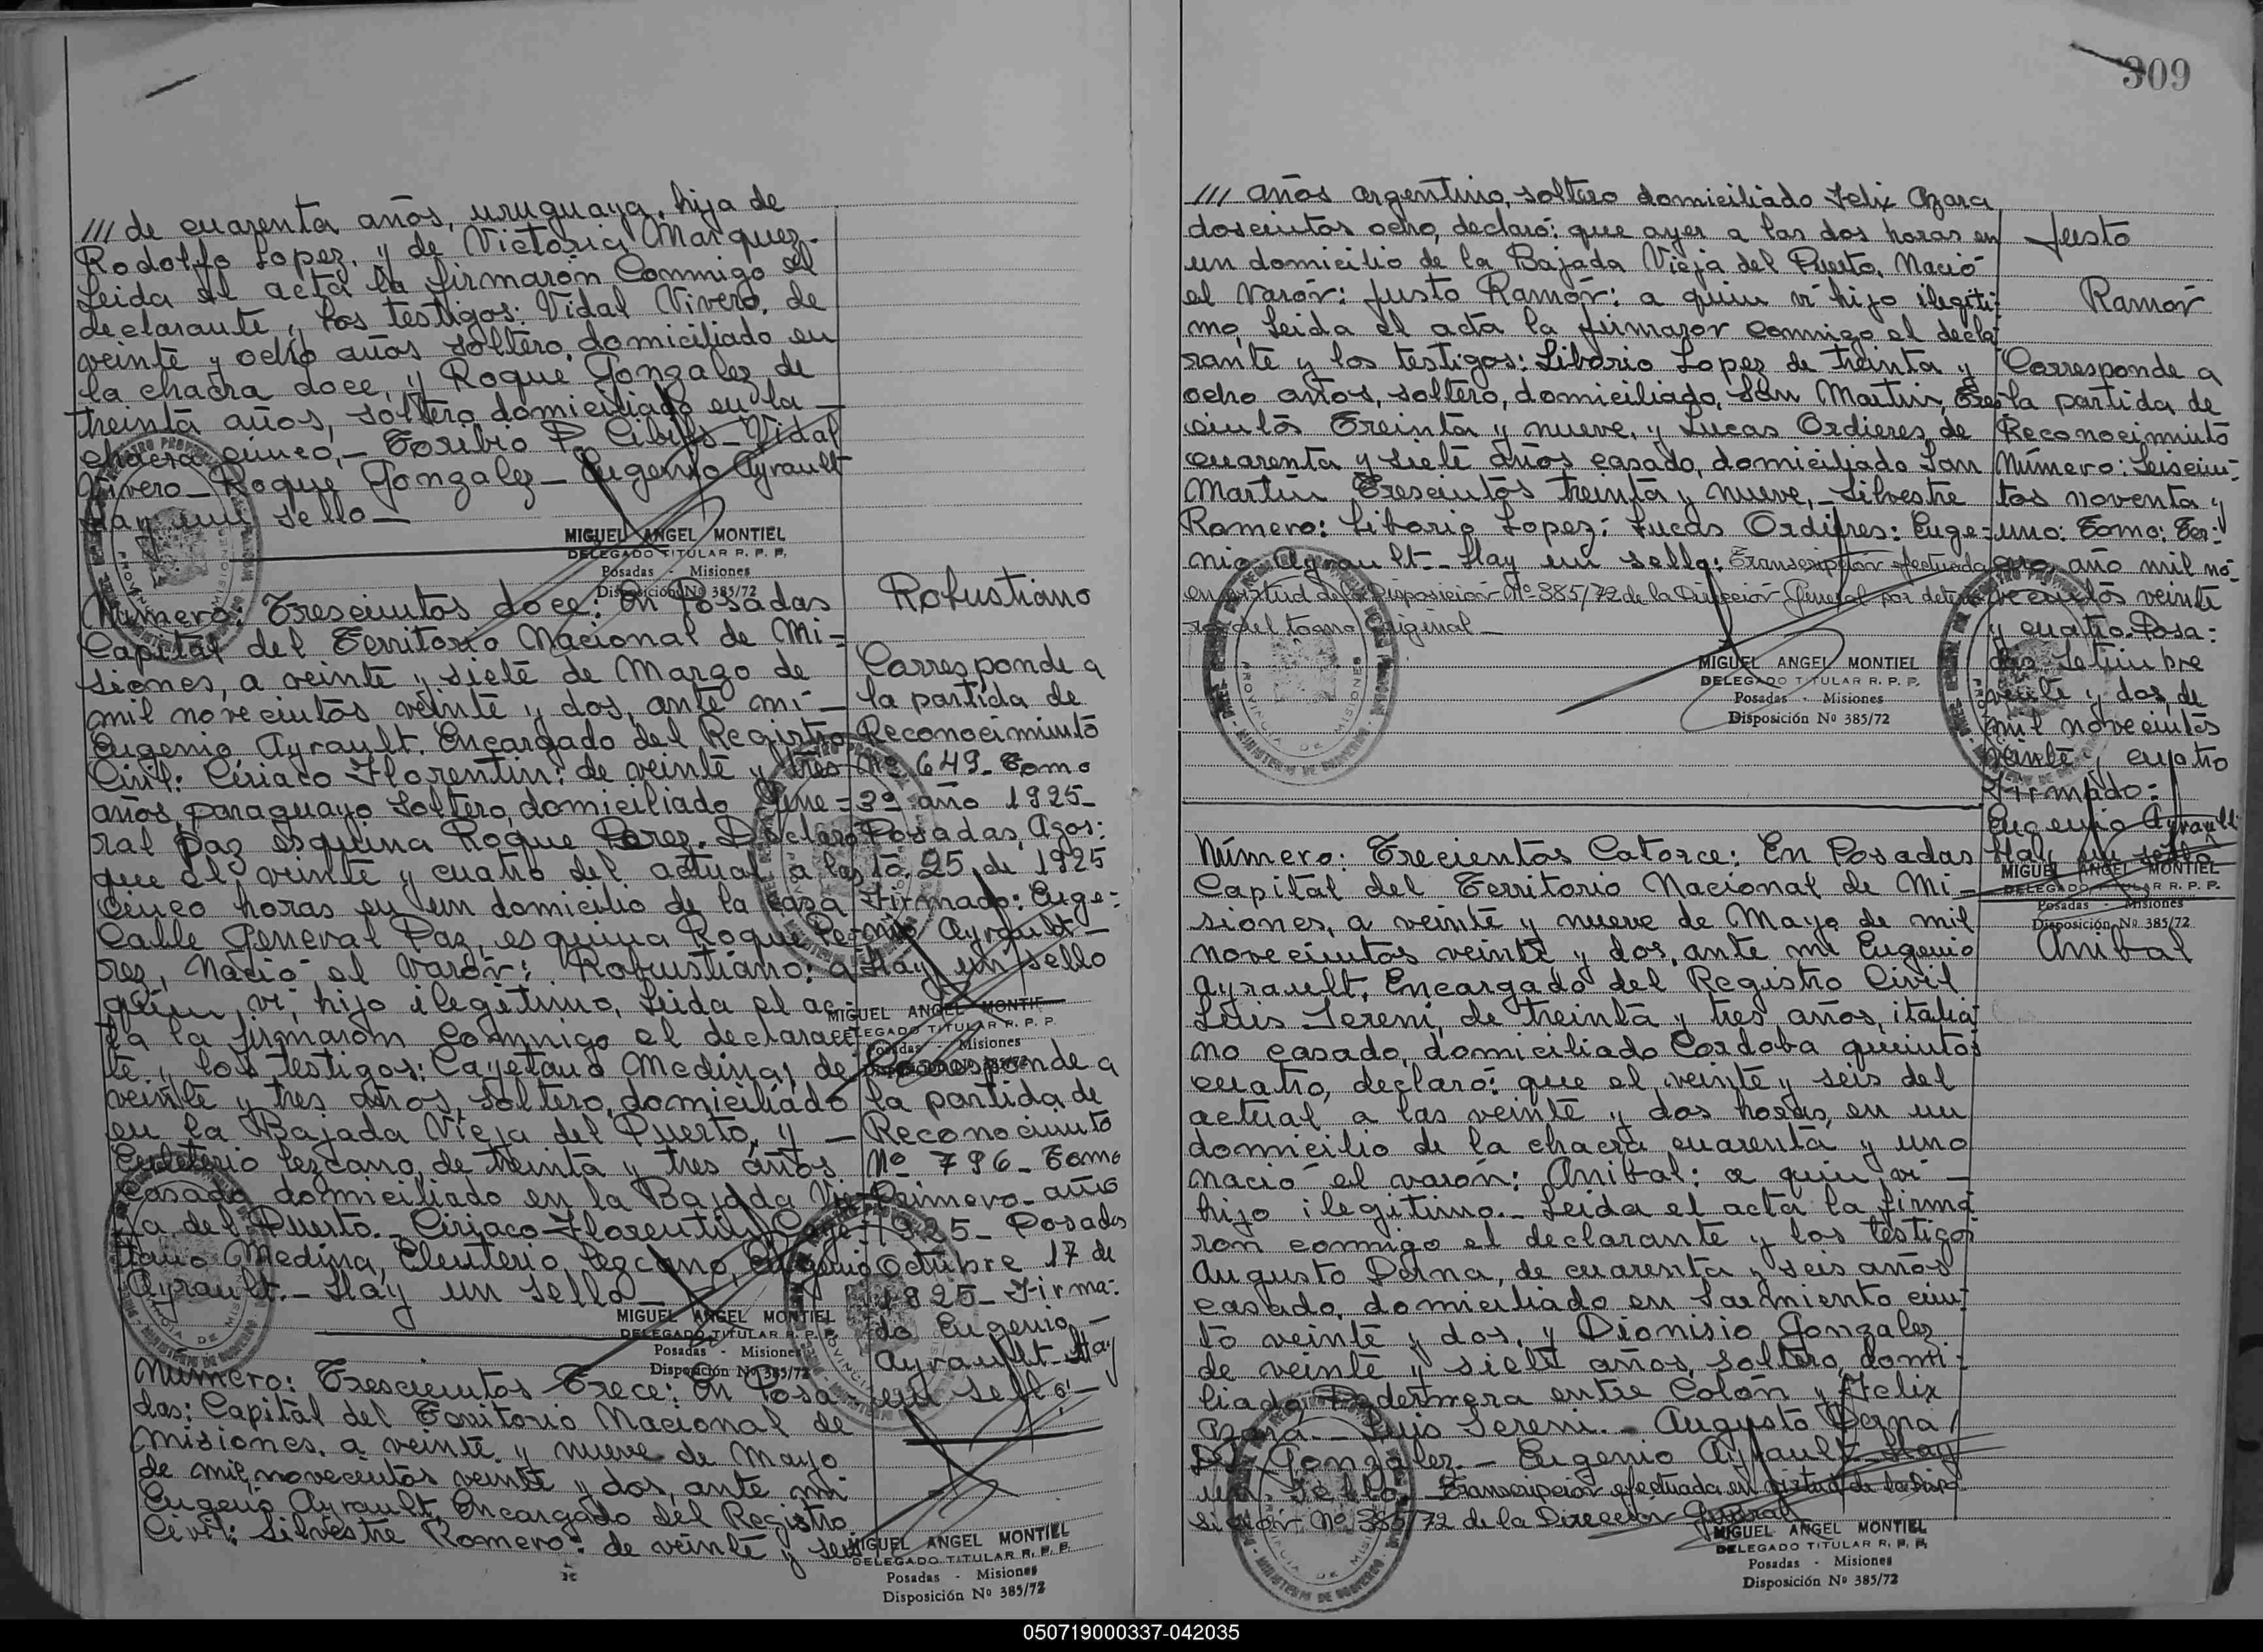 /// de cuarenta años, uruguaya, hija de
Rodolfo Lopez, y de Victoria Marquez.
Leida el acta la firmarón Conmigo el
declarante, y los testigos: Vidal Vivero, de
veinte y ocho años soltero, domiciliado en
la chacra doce, y Roque Gonzalez de
treinta años, soltero domiciliado en la —
chacra cinco, — Toribio P. Cibils - Vidal
Vivero - Roque Gonzalez - Eugenio Ayrault
Hay un sello —
MIGUEL ANGEL MONTIEL
DELEGADO TITULAR R. P. P.
Posadas - Misiones
Disposición Nº 385/72
Número: Trescientos doce: En Posadas
Capital del Territorio Nacional de Mi-
siones, a veinte y siete de Marzo de
mil novecientos veinte y dos, ante mi —
Eugenio Ayrault. Encargado del Registro
Civil: Ciriaco Florentin: de veinte y tres
años, paraguayo soltero, domiciliado Gene-
ral Paz esquina Roque Perez. Declaro
que el veinte y cuatro del actual a las
cinco horas en un domicilio de la casa
Calle General Paz, esquina Roque Pe-
rez, Nació el varón: Robustiano: a
quien vi, hijo ilegítimo, Leida el ac-
ta la firmarón conmigo el declaran
te y los testigos: Cayetano Medina, de
veinte y tres años, soltero, domiciliado
en la Bajada Vieja del Puerto, y —
Euleterio Lezcano, de treinta y tres años
Casado domiciliado en la Bajada Vie-
ja del Puerto. - Ciriaco Florentin, Caye-
tano Medina, Eleuterio Lezcano, Eugenio
Ayrault. - Hay un sello —
MIGUEL ANGEL MONTIEL
DELEGADO TITULAR R. P. P.
Posadas - Misiones
Disposición Nº 385/72
Robustiano
Corresponde a
la partida de
Reconocimiento
Nº 649 - Tomo
3º año 1925 -
Posadas, Agos:
to, 25 de 1925
Firmado: Euge:
nio Ayrault -
Hay un sello
MIGUEL ANGEL MONTIE
DELEGADO TITULAR R. P. P.
Posadas - Misiones
Corresponde a
la partida de
Reconocimiento
Nº 796 - Tomo
Primero - año
1925 - Posadas
Octubre 17 de
1925 - Firma:
do Eugenio —
Ayrault - Hay
un sello —
MIGUEL ANGEL MONTIEL
DELEGADO TITULAR R. P. P.
Posadas - Misiones
Disposición Nº 385/72
Número: Trescientos Trece: En Posa-
das: Capital del Territorio Nacional de
Misiones, a veinte y nueve de Mayo
de mil novecientos veinte y dos, ante mi
Eugenio Ayrault, Encargado del Registro
Civil: Silvestre Romero: de veinte y seis
309
/// años argentino, soltero domiciliado Felix Azara
doscientos ocho, declaró: que ayer a las dos horas en
un domicilio de la Bajada Vieja del Puerto, Nació
el Varón: Justo Ramón: a quien vi hijo ilegiti:
mo, Leida el acta la firmaron conmigo el decla
rante y los testigos: Liborio Lopez de treinta y
ocho años, soltero, domiciliado, San Martin, Tres
cientos Treinta y nueve, y Lucas Ordieres, de
cuarenta y siete años casado, domiciliado San
Martin Trescientos treinta y nueve, - Silvestre
Romero: Liborio Lopez: Lucas Ordieres: Euge-
nio Ayrault - Hay un sello: Transcripción efectuada
en virtud de la Disposición Nº 385/72 de la Dirección General por deterio
ro del tomo original —
MIGUEL ANGEL MONTIEL
DELEGADO TITULAR R. P. P.
Posadas - Misiones
Disposición Nº 385/72
Justo
Ramón
Corresponde a
la partida de
Reconocimiento
Número: Seiscien-
tos noventa y
uno: Tomo: Ter:
cero, año mil no-
vecientos veinte
y cuatro. Posa:
das Setiembre
veinte y dos, de
mil novecientos
veinte y cuatro
Firmado:
Eugenio Ayrault
Hay un sello
MIGUEL ANGEL MONTIEL
DELEGADO TITULAR R. P. P.
Posadas - Misiones
Disposición Nº 385/72
Número: Trecientos Catorce: En Posadas
Capital del Territorio Nacional de Mi-
siones, a veinte y nueve de Mayo de mil
novecientos veinte y dos, ante mi Eugenio
Ayrault, Encargado del Registro Civil
Luis Sereni, de treinta y tres años, italia
no casado, domiciliado Cordoba quientos
cuatro, declaró: que el veinte y seis del
actual a las veinte y dos horas, en un
domicilio de la chacra cuarenta y uno
nació el varón: Anibal: a quien vi —
hijo ilegitimo. - Leida el acta la firma
ron conmigo el declarante y los testigos
Augusto Perna, de cuarenta y seis años
casado, domiciliado en Sarmiento cien:
to veinte y dos, y Dionisio Gonzalez
de veinte y siete años, soltero, domi:
liado Pedernera entre Colón y Felix
Azara - Luis Sereni. - Augusto Perna
D. Gonzalez. - Eugenio Ayrault - Hay
un sello. - Transcripción efectuada en virtud de la Dispo
sición Nº 385/72 de la Dirección General
MIGUEL ANGEL MONTIEL
DELEGADO TITULAR R. P. P.
Posadas - Misiones
Disposición Nº 385/72
Anibal
050719000337-042035